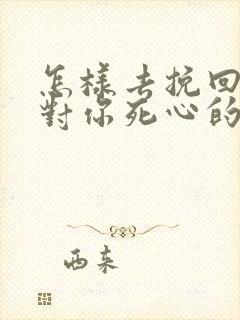 怎樣去挽回
對你死心的
西來